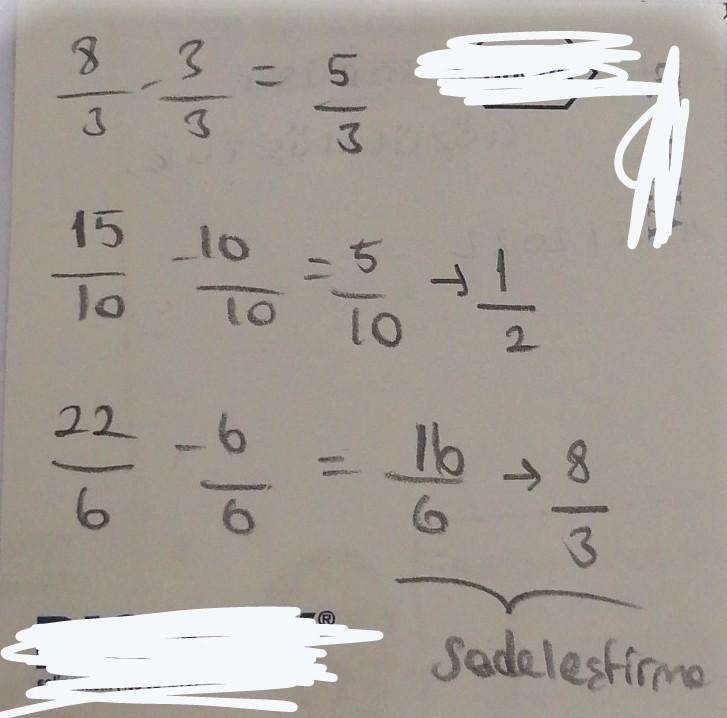 8/3 - 3/3 = 5/3
15/10 - 10/10 = 5/10 → 1/2
22/6 - 6/6 = 16/6 → 8/3
Sadeleştirme
®